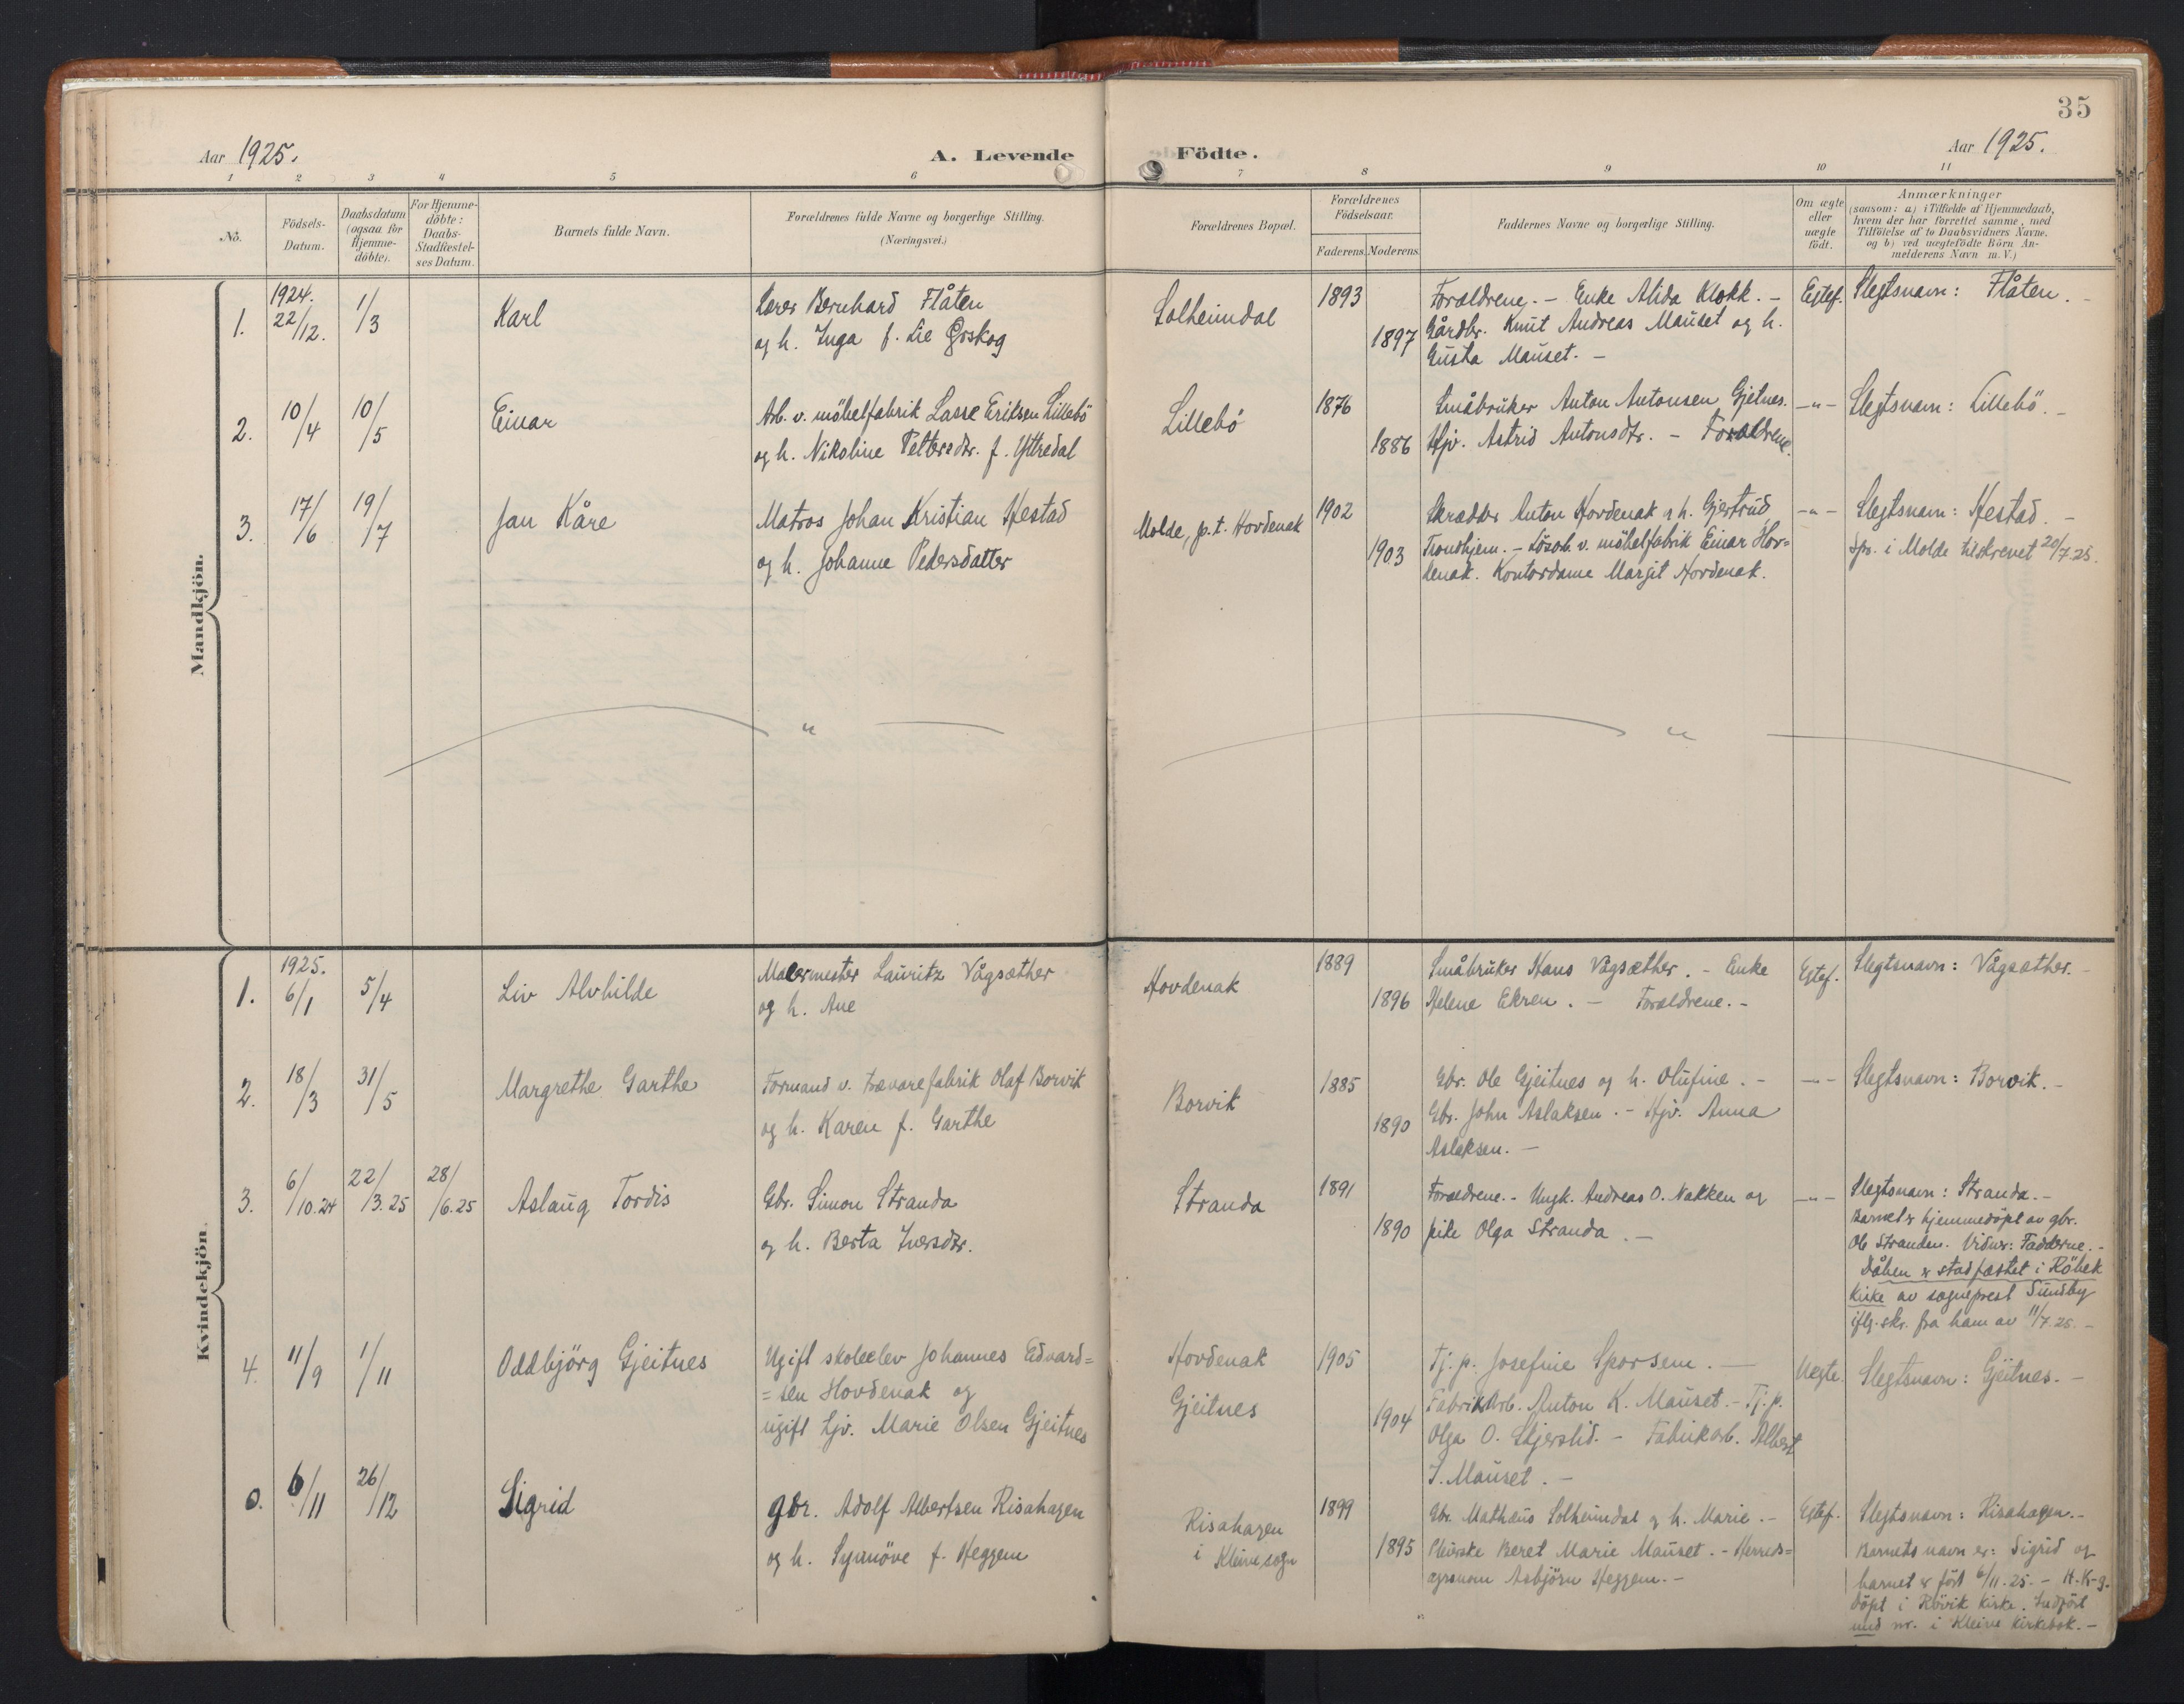 35
Aar 1925.
A. Levende Födte.
Aar 1925.
1 2 3 4 5 6 7 8 9 10 11
No.
Födsels-
Datum.
Daabsdatum
(ogsaa for
Hjemme-
döbte).
For Hjemme-
döbte:
Daabs-
Stadfæstel-
ses Datum.
Barnets fulde Navn.
Forældrenes fulde Navne og borgerlige Stilling.
(Næringsvei.)
Forældrenes Bopæl.
Forældrenes
Födselsaar.
Faderens. Moderens.
Faddernes Navne og borgerlige Stilling.
Om ægte
eller
uægte
födt.
Anmærkninger
(saasom: a) i Tilfælde af Hjemmedaab,
hvem der har forrettet samme, med
Tilföielse af to Daabsvidners Navne.
og b) ved uægtefödte Börn An-
melderens Navn m. V.)
Mandkjön.
1.
1924.
22/12.
1/3
Karl
Lærer Bernhard Flåten
og h. Inga f. Lie Ørskog
Solheimdal
1893
1897
Forældrene. - Enke Alida Klokk. -
Gårdbr. Knut Andreas Mauset og h.
Gusta Mauset. -
Egtef.
Slegtsnavn: Flåten. -
2.
10/4
10/5
Einar
Arb. v. möbelfabrik Lasse Eriksen Lillebö
og h. Nikoline Pettersdtr. f. Yttredal
Lillebö
1876
1886
Småbruker Anton Antonsen Gjetnes.
Hjv. Astrid Antonsdtr. - Forældrene.
-"-
Slegtsnavn: Lillebö. -
3.
17/6
19/7
Jan Kåre
Matros Johan Kristian Hestad
og h. Johanne Pedersdatter
Molde, p.t. Hovdenak
1902
1903
Skrædder Anton Hovdenak o h. Gjertrud
Trondhjem. - Lösarb. v. möbelfabrik Einar Hov=
denak. Kontordame Margit Hovdenak.
-"-
Slegtsnavn: Hestad. -
Spr. i Molde tilskrevet 20/7.25.
"
"
Kvindekjön.
1.
1925.
6/1
5/4
Liv Alvhilde
Malermester Lauritz Vågsæther
og h. Ane
Hovdenak
1889
1896
Småbruker Hans Vågsæther. - Enke
Helene Ekren. - Forældrene. -
Egtef.
Slegtsnavn: Vågsæther. -
2.
18/3
31/5
Margrethe Garthe
Formand v. trævarefabrik Olaf Borvik
og h. Karen f. Garthe
Borvik
1885
1890
Gbr. Ole Gjeitnes og h. Olufine. -
Gbr. John Aslaksen. - Hjv. Anna
Aslaksen. -
-"-
Slegtsnavn: Borvik. -
3.
6/10.24
22/3.25
28/6.25
Aslaug Tordis
Gbr. Simon Stranda
og h. Berta Iversdtr.
Stranda
1891
1890
Forældrene. - Ungk. Andreas O. Nakken og
pike Olga Stranda. -
-"-
Slegtsnavn: Stranda. -
Barnet er hjemmedöpt av gbr.
Ole Stranden. Vidner: Fadderne. -
Dåben er stadfæstet i Röbek
kirke av sogneprest Sundby
iflg. skr. fra ham av 11/7.25. -
4.
11/9
1/11
Oddbjörg Gjeitnes
Ugift skoleelev Johannes Edvard=
=sen Hovdenak og
ugift hjv. Marie Olsen Gjeitnes
Hovdenak
Gjeitnes
1905
1904
Tj.p. Josefine Sporsem. -
Fabrikarb. Anton K. Mauset. - Tj.p.
Olga O. Skjerslid. - Fabrikarb. Albert
I. Mauset. -
Uegte.
Slegtsnavn: Gjeitnes. -
0.
6/11
26/12
Sigrid
gbr. Adolf Albertsen Risahagen
og h. Synnöve f. Heggem
Risahagen
i Kleive sogn
1899
1895
Gbr. Mathæus Solheimdal og h. Marie. -
Pleierske Beret Marie Mauset. - Herreds=
agronom Asbjörn Heggem. -
Egtef.
Slegtsnavn: Risahagen. -
Barnets navn er: Sigrid og
barnet er födt 6/11.25. - H.K-g.
Döpt i Rövik kirke. Indfört
med nr. i Kleive kirkebok. -